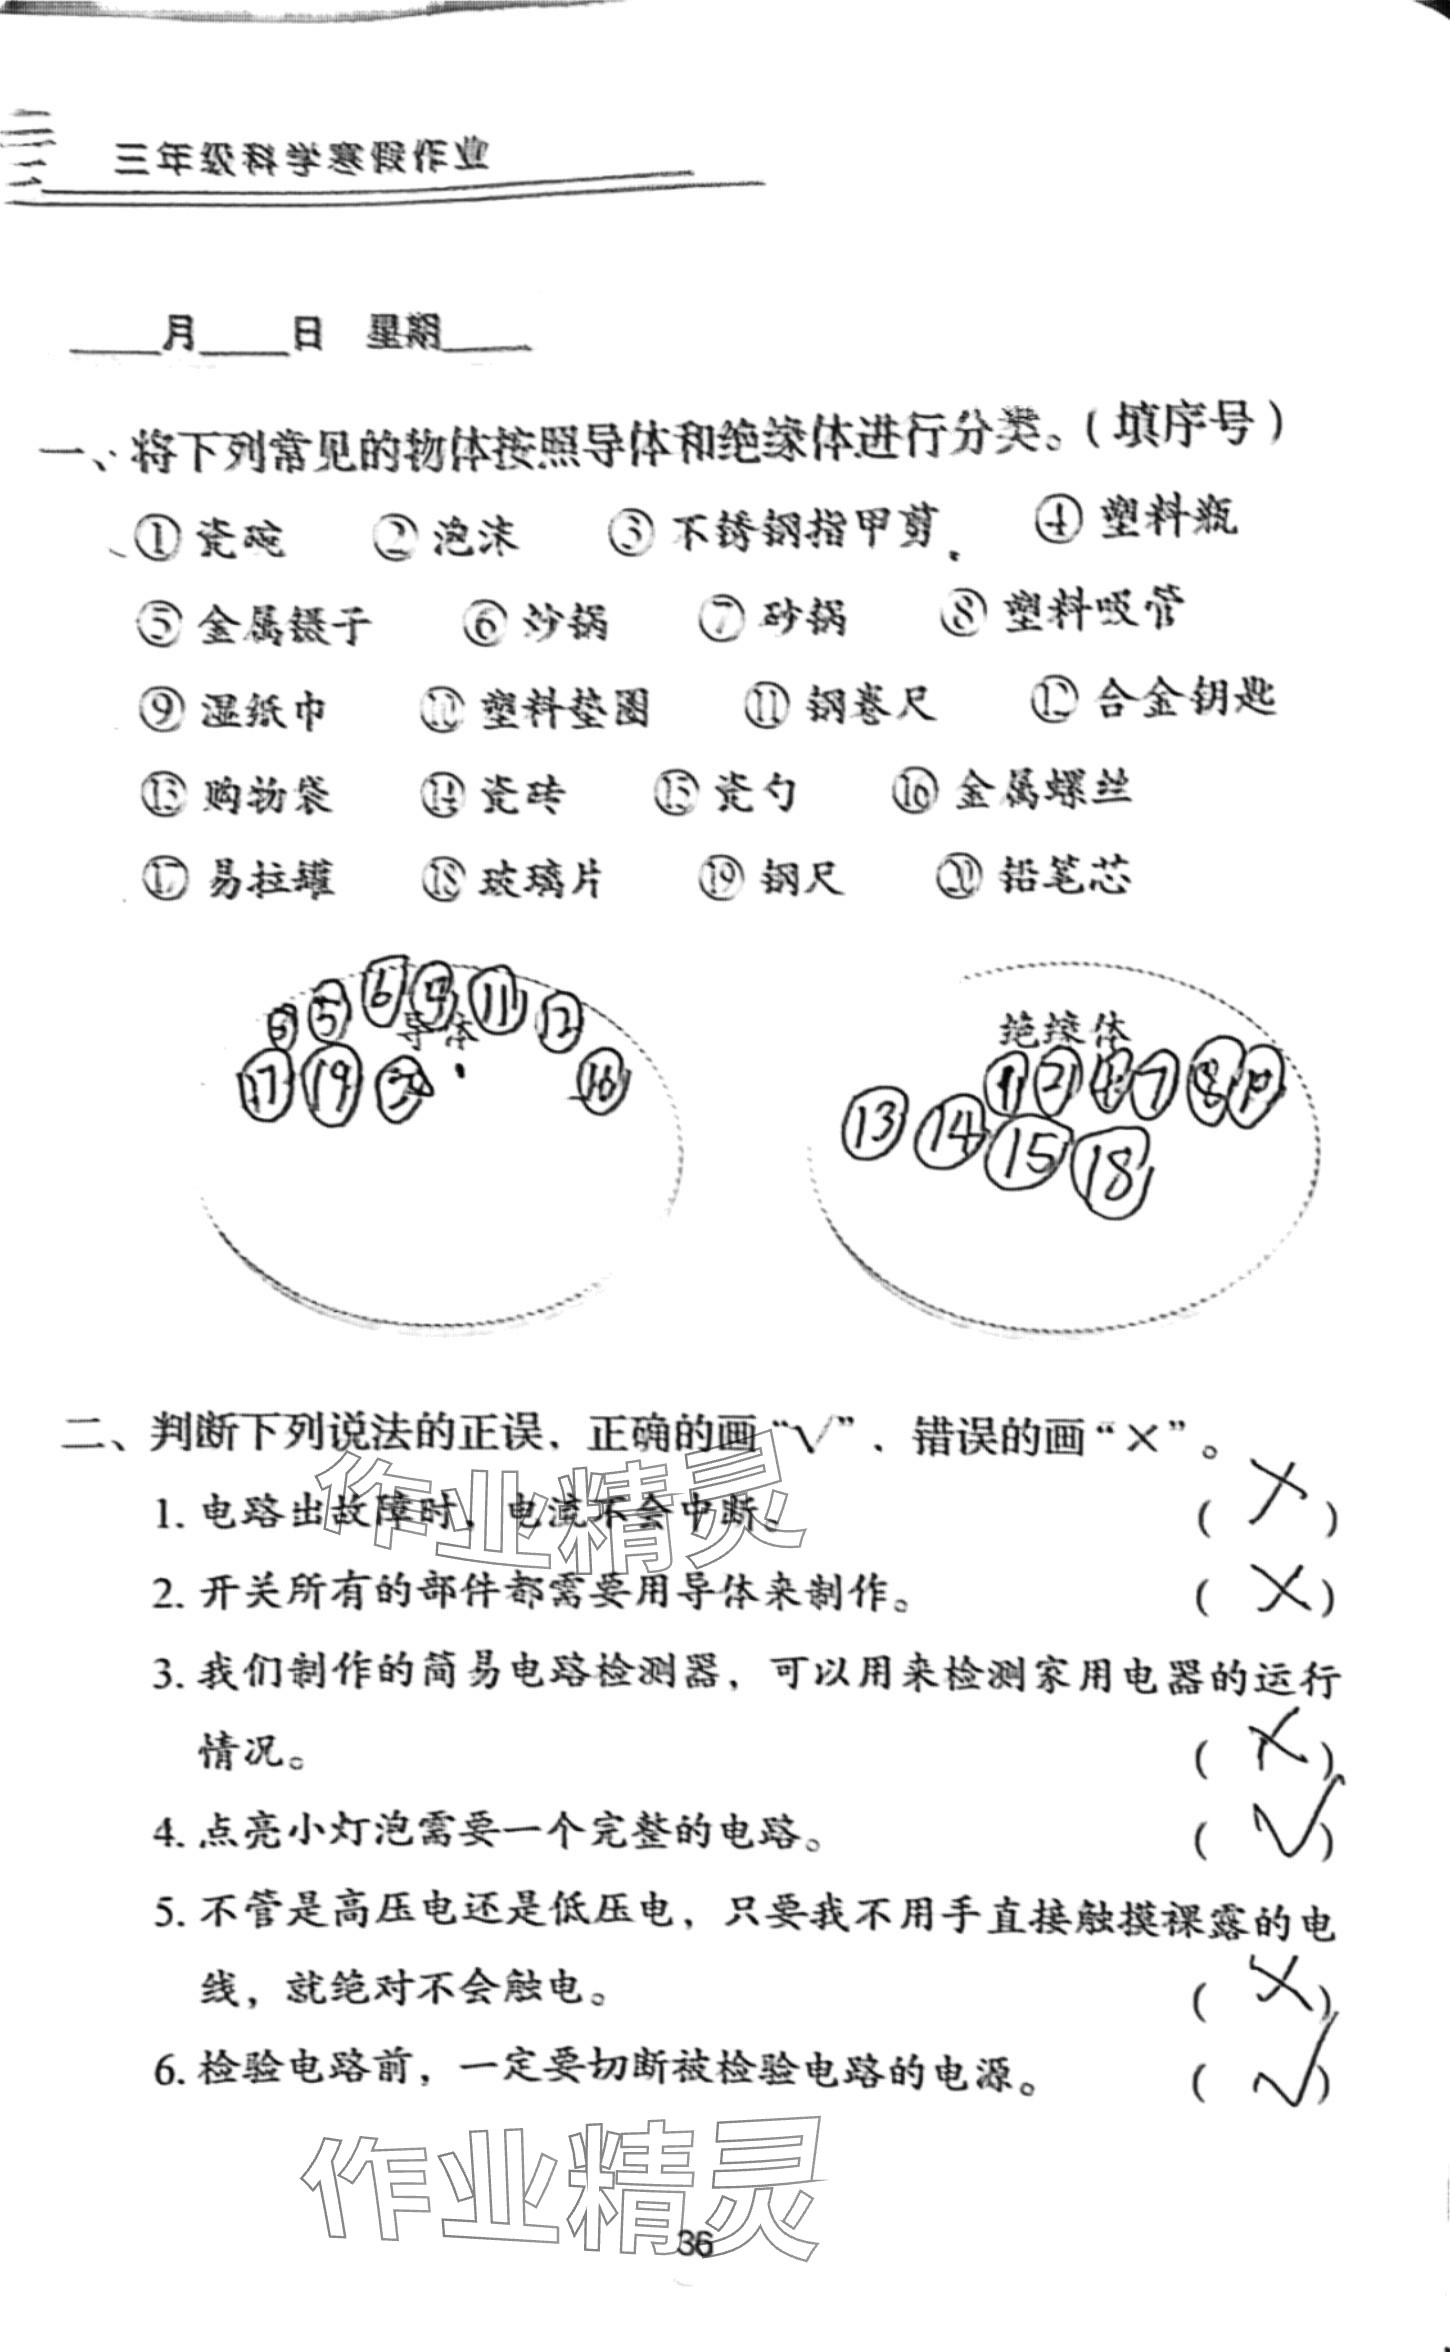 三年级科学寒假作业
____月____日 星期____
一、将下列常见的物体按照导体和绝缘体进行分类。（填序号）
①瓷碗 ②泡沫 ③不锈钢指甲剪 ④塑料瓶
⑤金属镊子 ⑥炒锅 ⑦砂锅 ⑧塑料吸管
⑨湿纸巾 ⑩塑料垫圈 ⑪钢卷尺 ⑫合金钥匙
⑬购物袋 ⑭瓷砖 ⑮瓷勺 ⑯金属螺丝
⑰易拉罐 ⑱玻璃片 ⑲钢尺 ⑳铅笔芯
③ ⑤ ⑥ ⑨ ⑪ ⑫
导体
⑰ ⑲ ⑳ ⑯
绝缘体
① ② ④ ⑦ ⑧ ⑩
⑬ ⑭ ⑮ ⑱
二、判断下列说法的正误，正确的画“√”，错误的画“×”。
1. 电路出故障时，电流不会中断。 ( × )
2. 开关所有的部件都需要用导体来制作。 ( × )
3. 我们制作的简易电路检测器，可以用来检测家用电器的运行
情况。 ( × )
4. 点亮小灯泡需要一个完整的电路。 ( √ )
5. 不管是高压电还是低压电，只要我不用手直接触摸裸露的电
线，就绝对不会触电。 ( × )
6. 检验电路前，一定要切断被检验电路的电源。 ( √ )
作业精灵
作业精灵
36